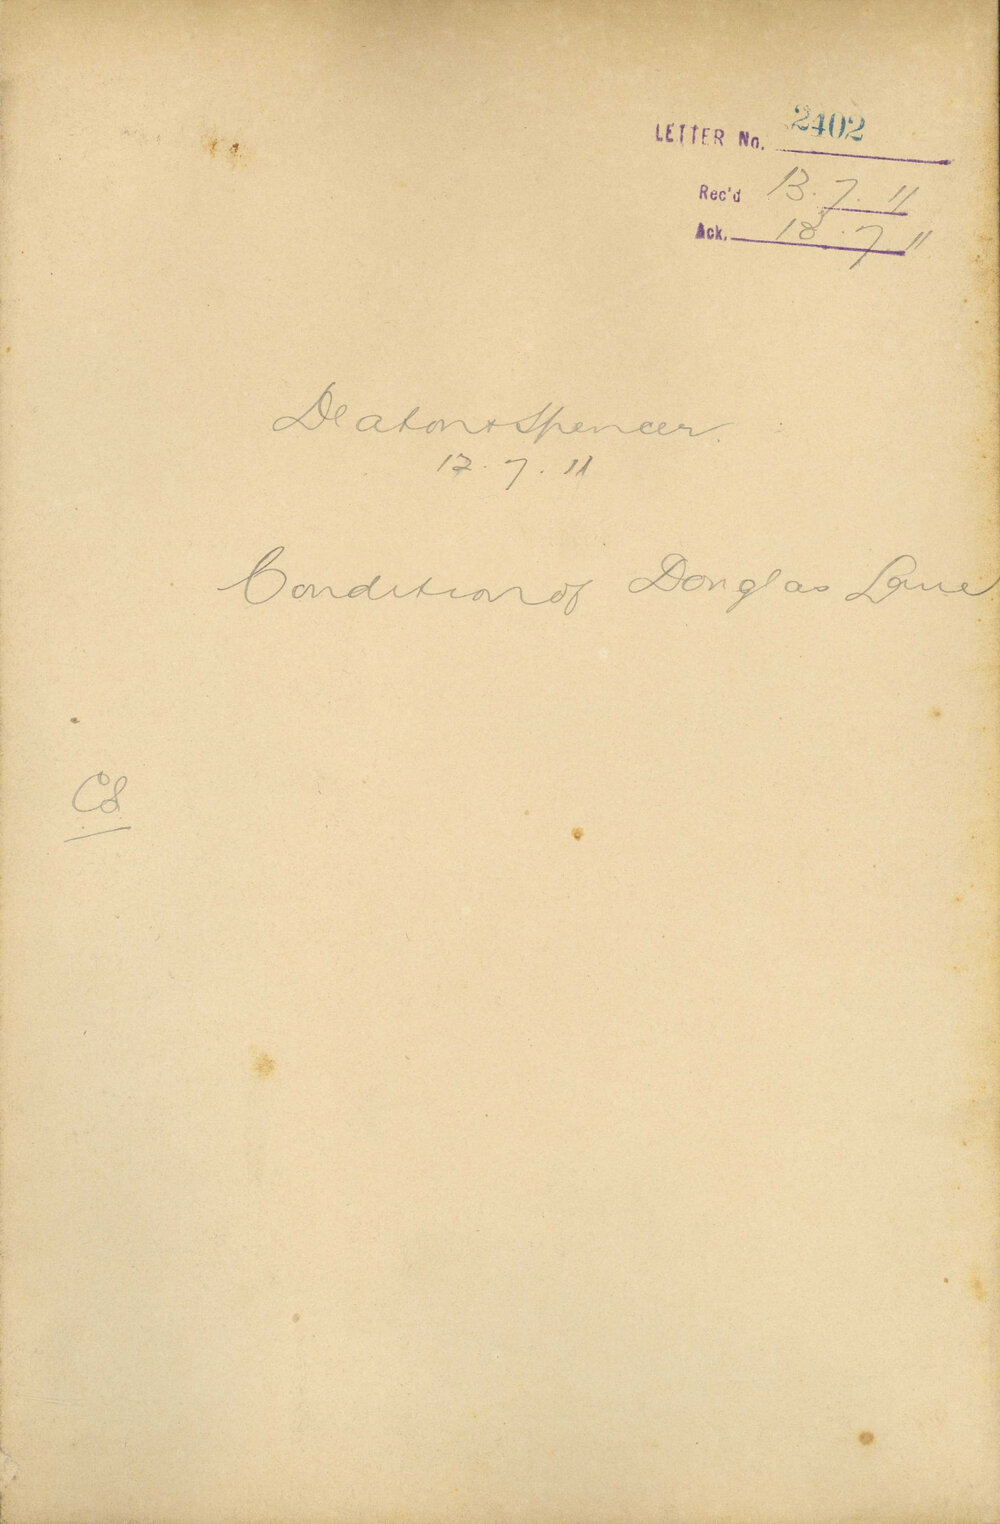 LETTER No. 2402
Rec'd 13.7.11
Ack. 18.7.11
Deaton & Spencer.
12.7.11
Condition of Douglas Lane
CS